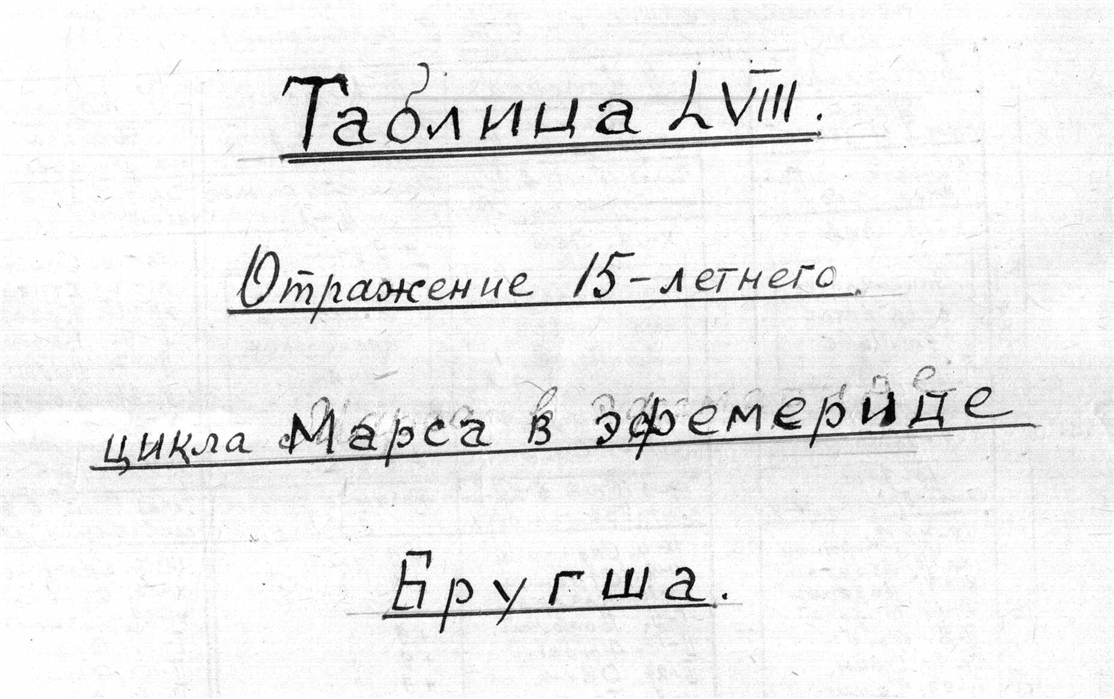 Таблица LVIII.
Отражение 15-летнего
цикла Марса в эфемериде
Бругша.